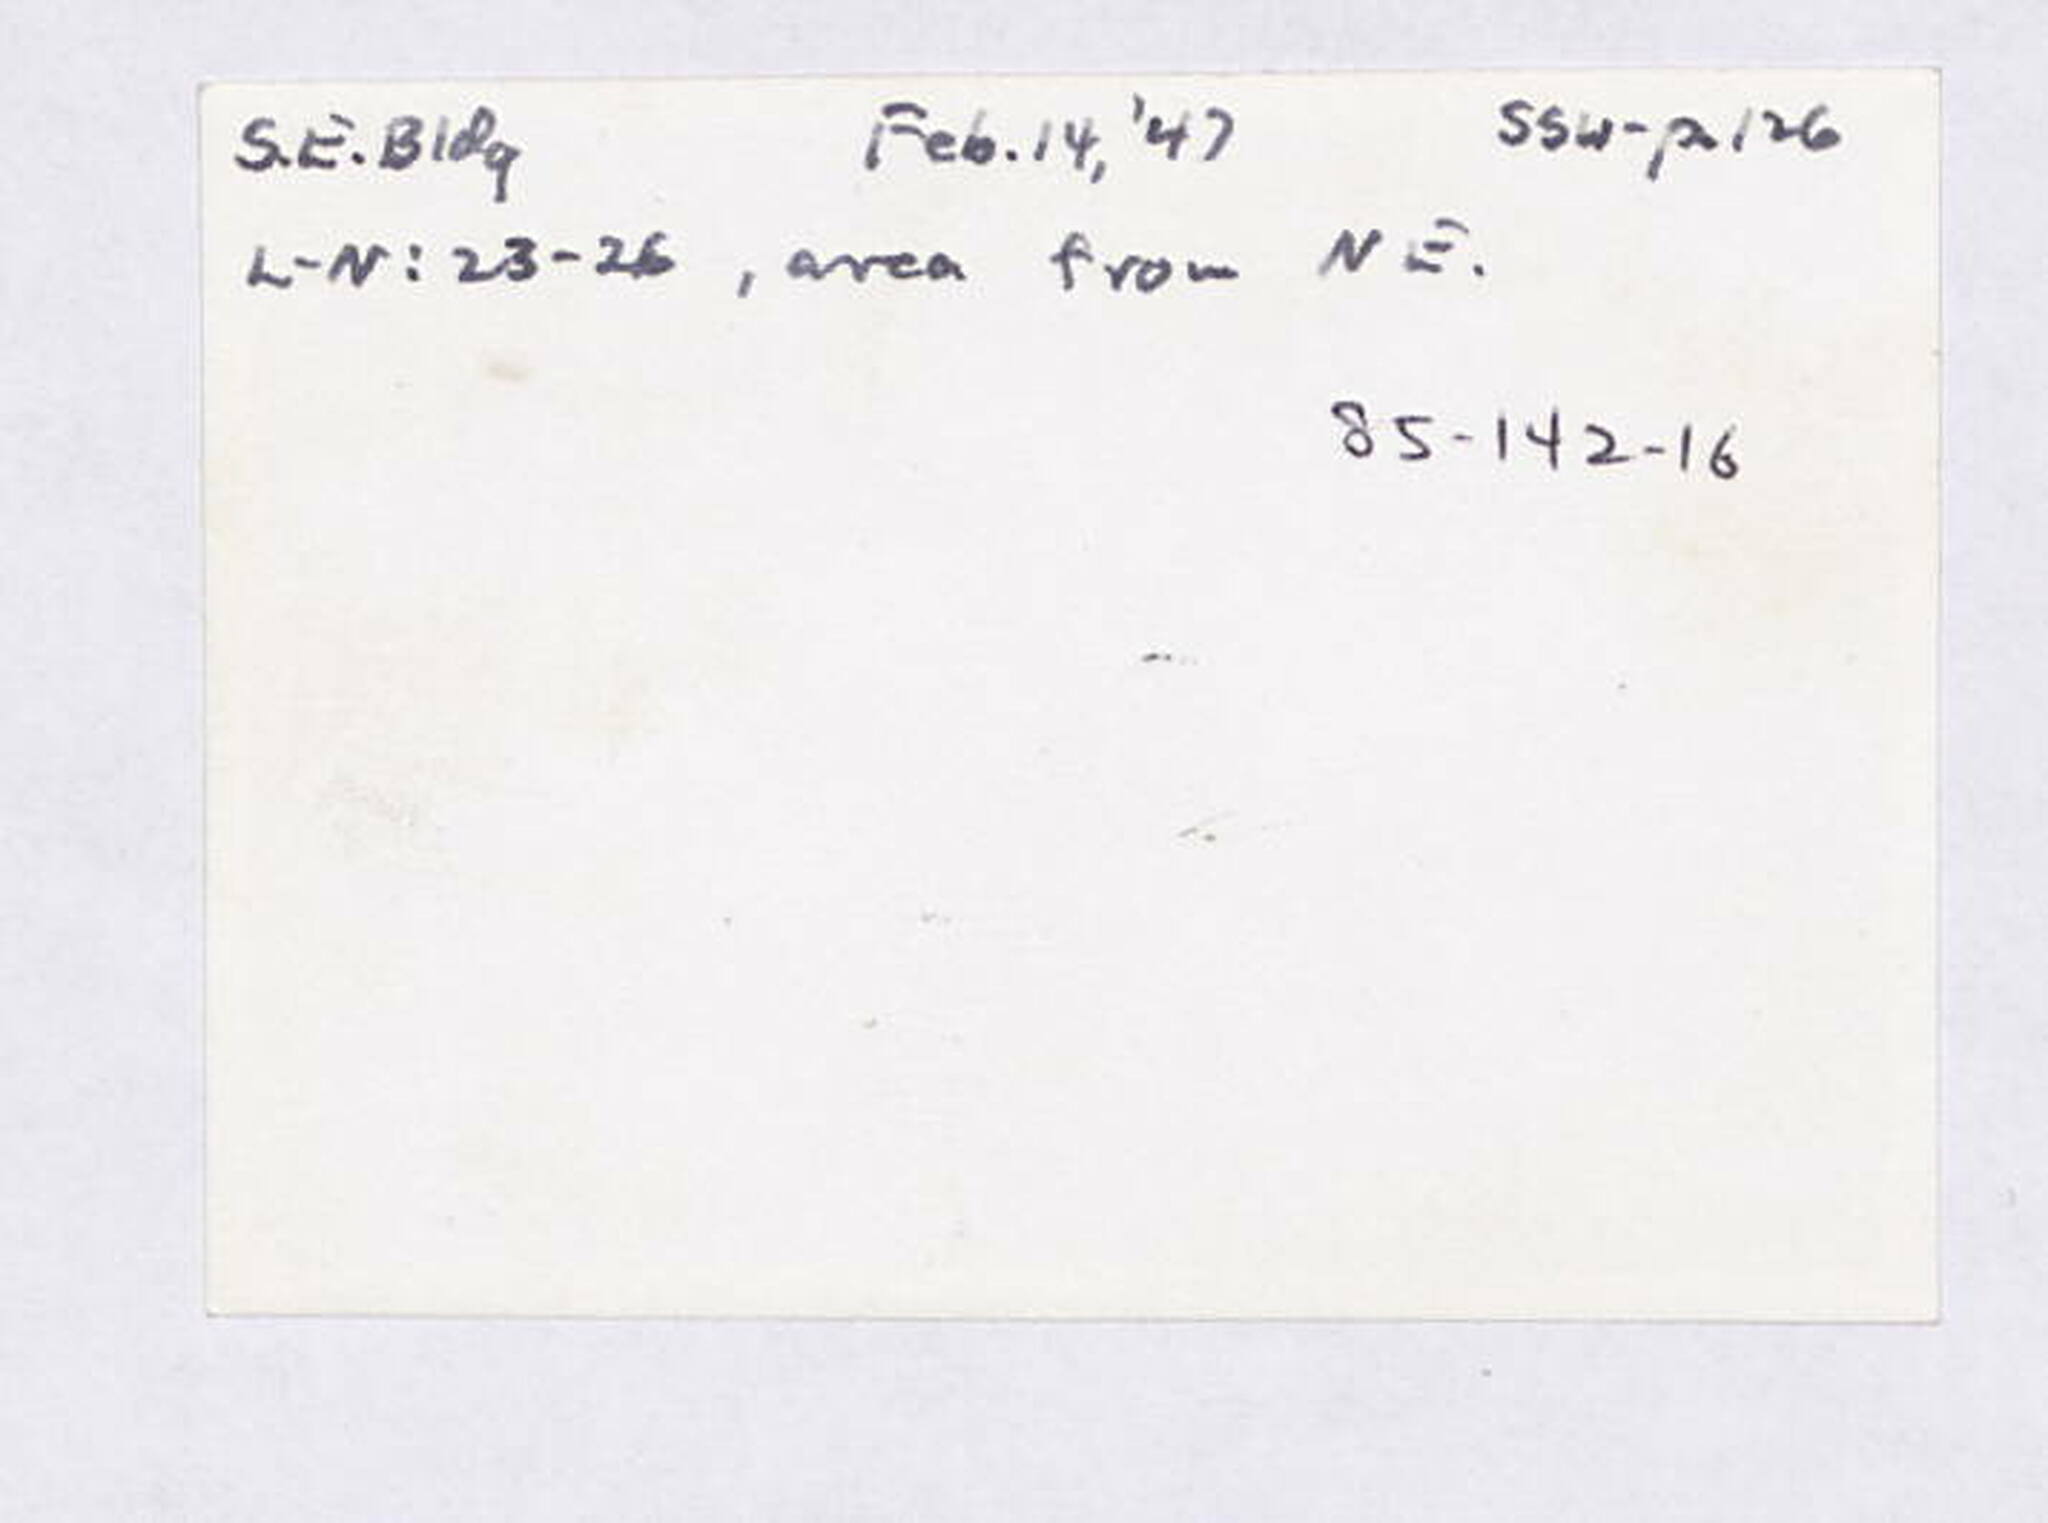 S.E. Bldg Feb. 14, '47 SSW-p. 126
L-N: 23-26, area from N E.
85-142-16